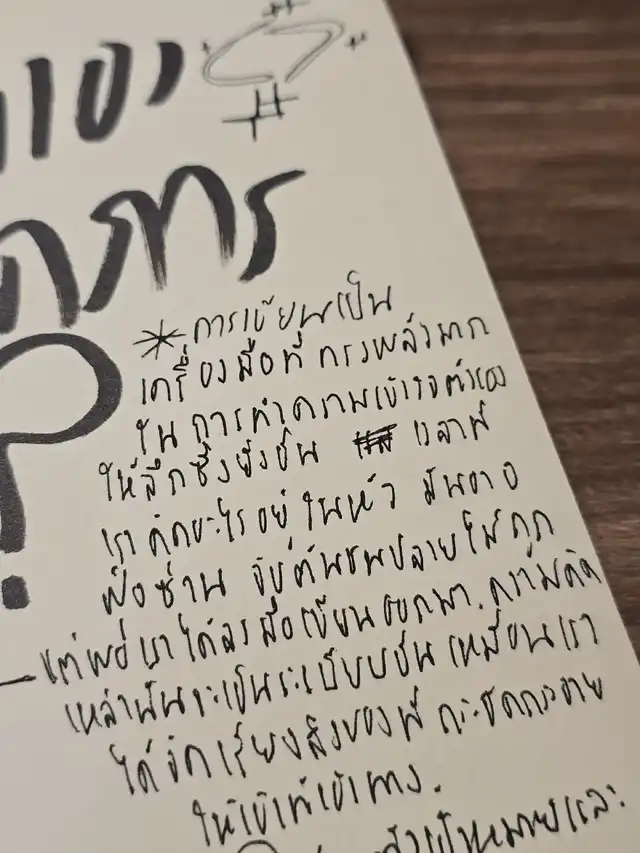 การ
?
* การเขียนเป็น
เครื่องมือที่ ทรงพลังมาก
ใน การทำความเข้าใจตัวเอง
ให้ลึกซึ้งยิ่งขึ้น เวลาที่
เราคิดอะไรอยู่ ในหัว มันอาจ
ฟุ้งซ่าน จับต้นชนปลายไม่ถูก
แต่พอเราได้ลงมือเขียนออกมา. ความคิด
เหล่านั้นจะเป็นระเบียบขึ้น เหมือนเรา
ได้จัดเรียงสิ่งของที่ กระจัดกระจาย
ให้เข้าที่เข้าทาง.
เป้าหมายและ